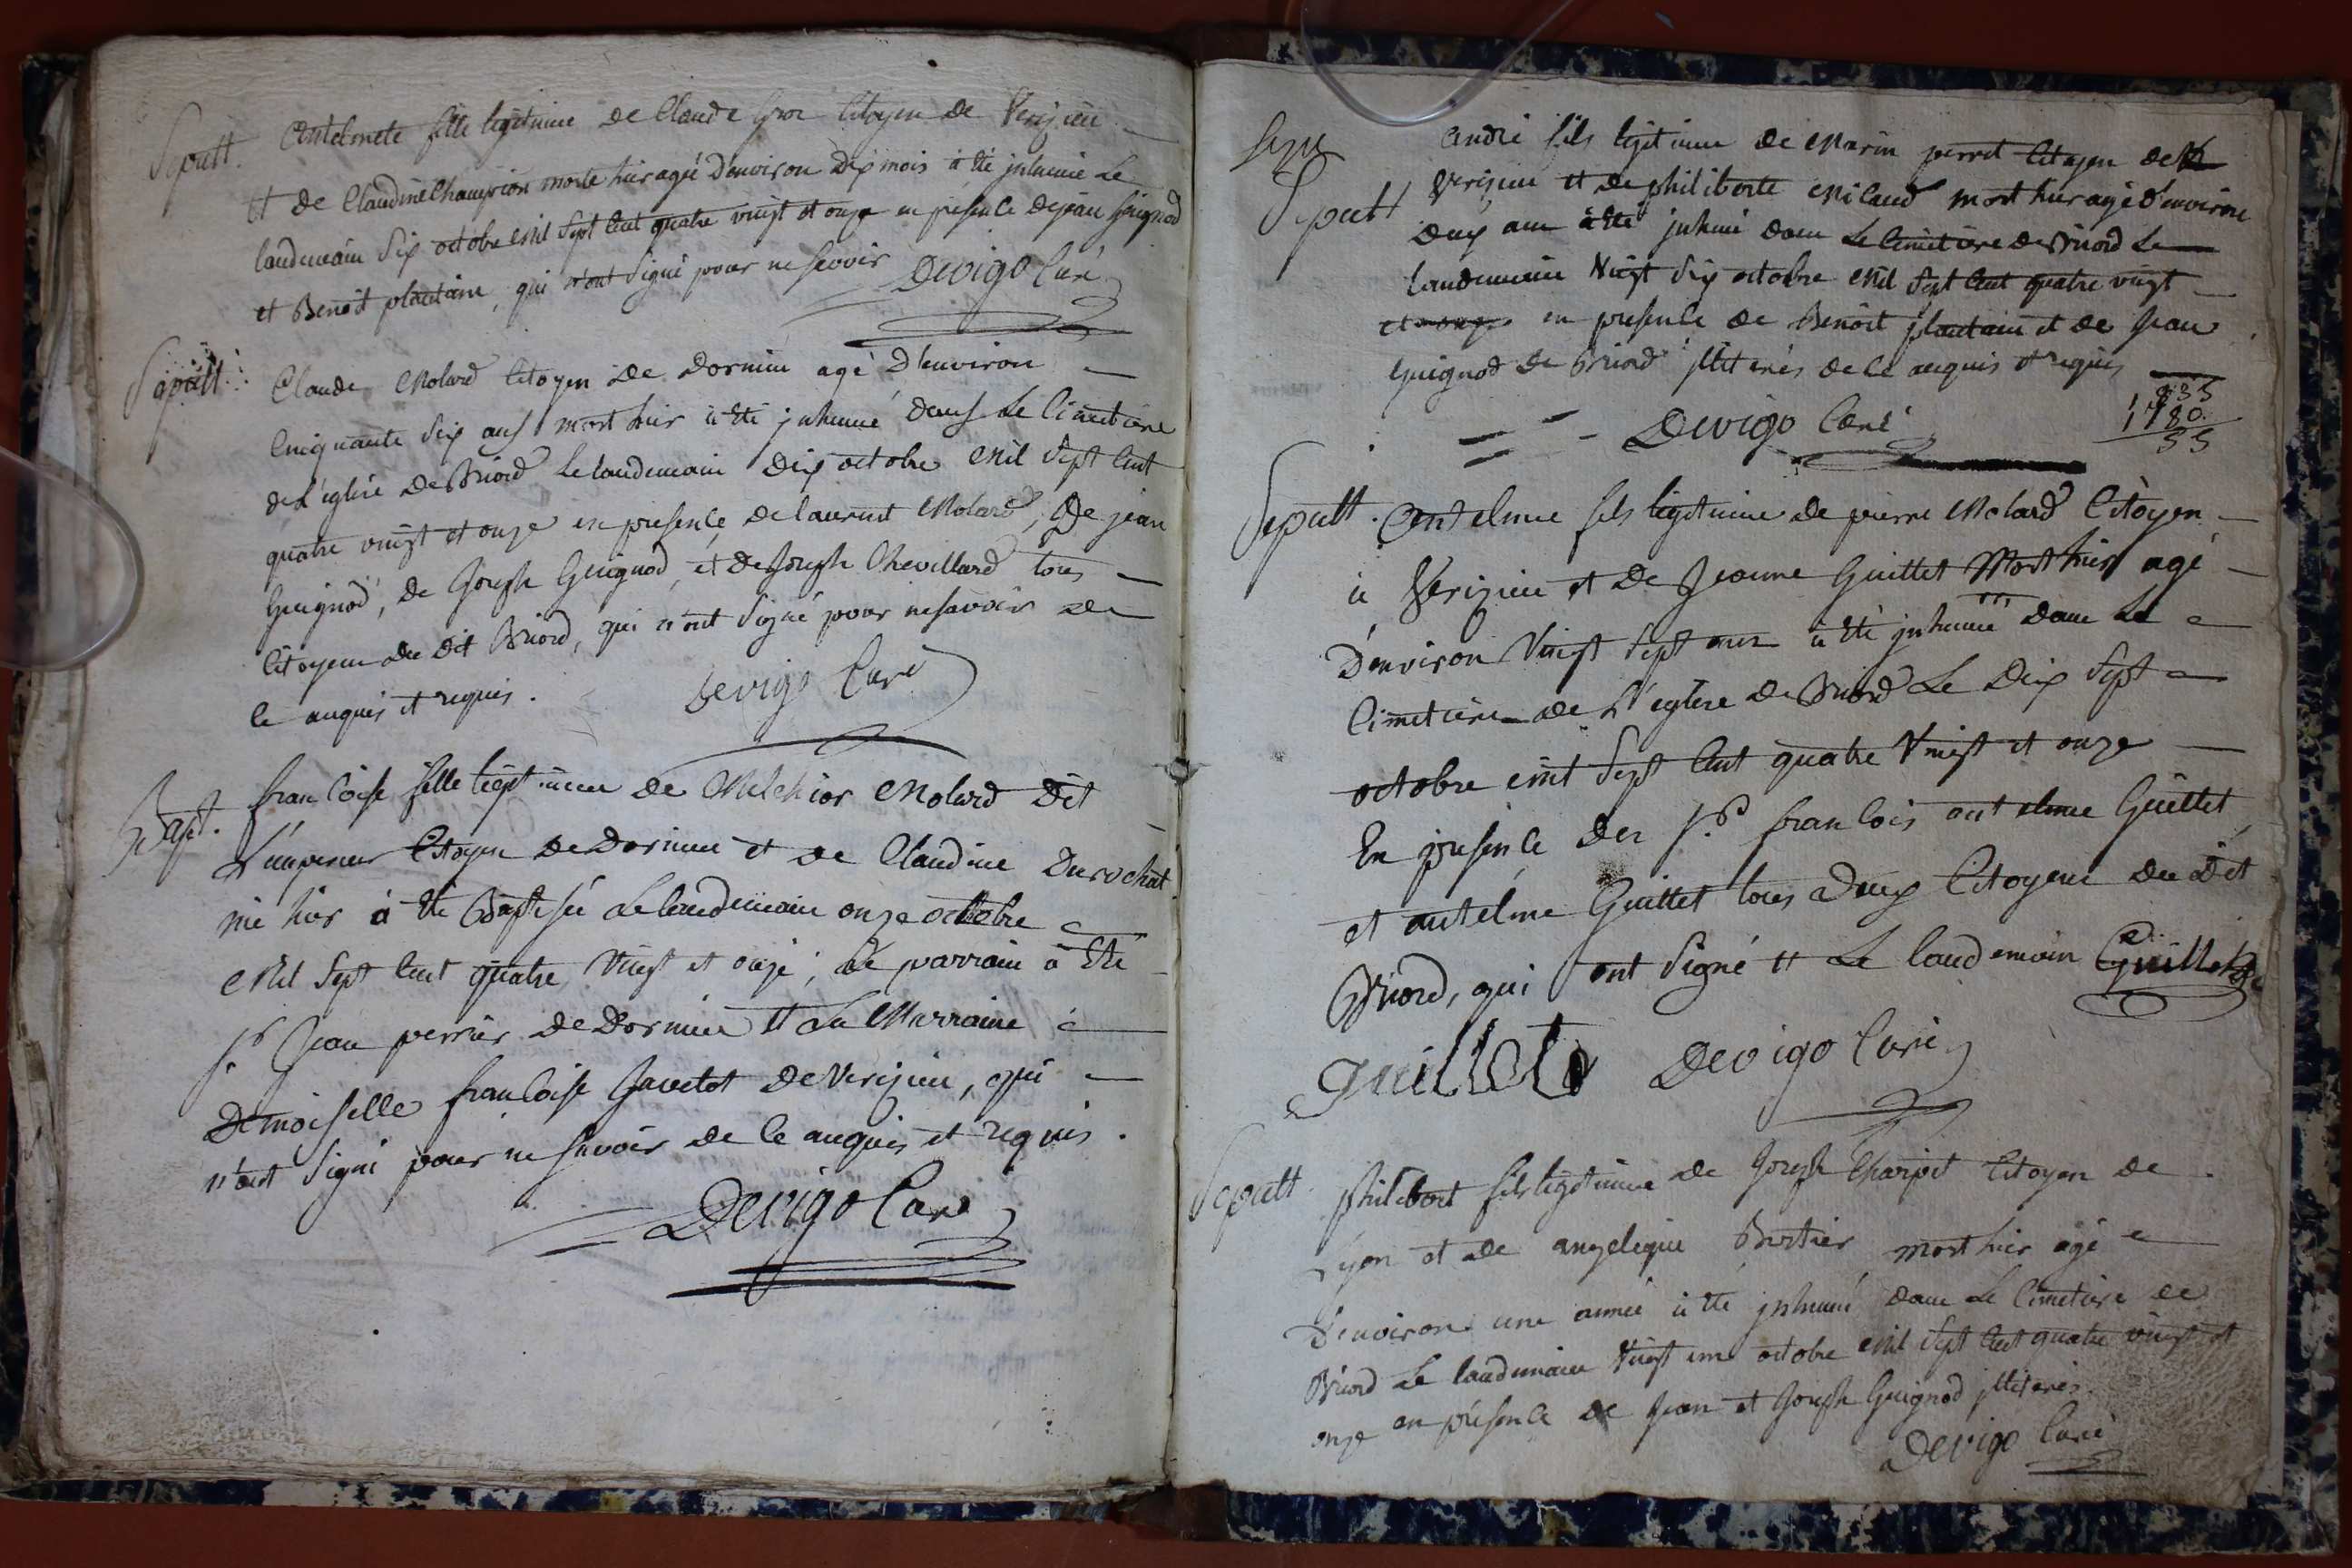 Sepult. Antelmete fille legitime de Claude Gros Citoyen de Verizieu
et de Claudine Champion morte hier agée D'environ Dix mois à été jnhumée Le
landemain Six octobre Mil Sept Cent quatre vingt et onze en présence de jean Guignod
et Benoit plantain, qui n'ont Signé pour ne Scavoir Devigo Curé
Sepult. Claude Molard Citoyen de Dornieu agé D'environ
Cinquante Six ans mort hier à été jnhumé dans Le Cimetiere
de L'eglise de Briord Le landemain Dix octobre Mil Sept Cent
quatre vingt et onze en presence, de laurent Molard, De jean
Guignod, de Joseph Guignod, et de Joseph Chevillard tous
Citoyens du Dit Briord, qui n'ont Signé pour ne Savoir de
ce enquis et requis. Devigo Curé
Bapt. francoise fille legitime de Melchior Molard Dit
L'empereur Citoyen de Dornieu et de Claudine Durochat
née hier à été Baptisée Le landemain onze octobre
Mil Sept Cent quatre Vingt et onze, Le parrain à Eté
S.r Jean perrier de Dornieu et La Marraine
Demoiselle francoise Gavetot de Verizieu, qui
n'ont Signé pour ne Savoir de Ce enquis et requis.
Devigo Curé
Sepult André fils legitime de Marin perret Citoyen de
Verizieu et de philiberte Milaud mort hier agé d'environ
Deux ans à été jnhumé dans Le Cimetiere de Briord Le
landemain Vingt Six octobre Mil Sept Cent quatre vingt
et onze en presence de Benoit plantain et de Jean
Guignod de Briord jlliterés de Ce enquis et requis
835
1780.
55
Devigo Curé
Sepult. Antelme fils legitime de pierre Molard Citoyen
à Verizieu et De Jeanne Guillet Mort hier agé
D'environ Vingt Sept ans à été jnhumé dans Le
Cimetiere de L'eglise de Briord Le Dix Sept
octobre mil Sept Cent quatre Vingt et onze
En presence des S.rs francois antelme Guillet
et antelme Guillet tous Deux Citoyens du Dit
Briord, qui ont Signé et Le landemain Guillet
Guillet Devigo Curé
Sepult philibert fils legitime de Joseph Charpit Citoyen de
Lyon et de angelique Bertier mort hier agé
D'environ une année à été jnhumé dans Le Cimetiere de
Briord Le landemain Vingt un octobre Mil Sept Cent quatre vingt et
onze en présence de Jean et Joseph Guignod jlliterés.
Devigo Curé